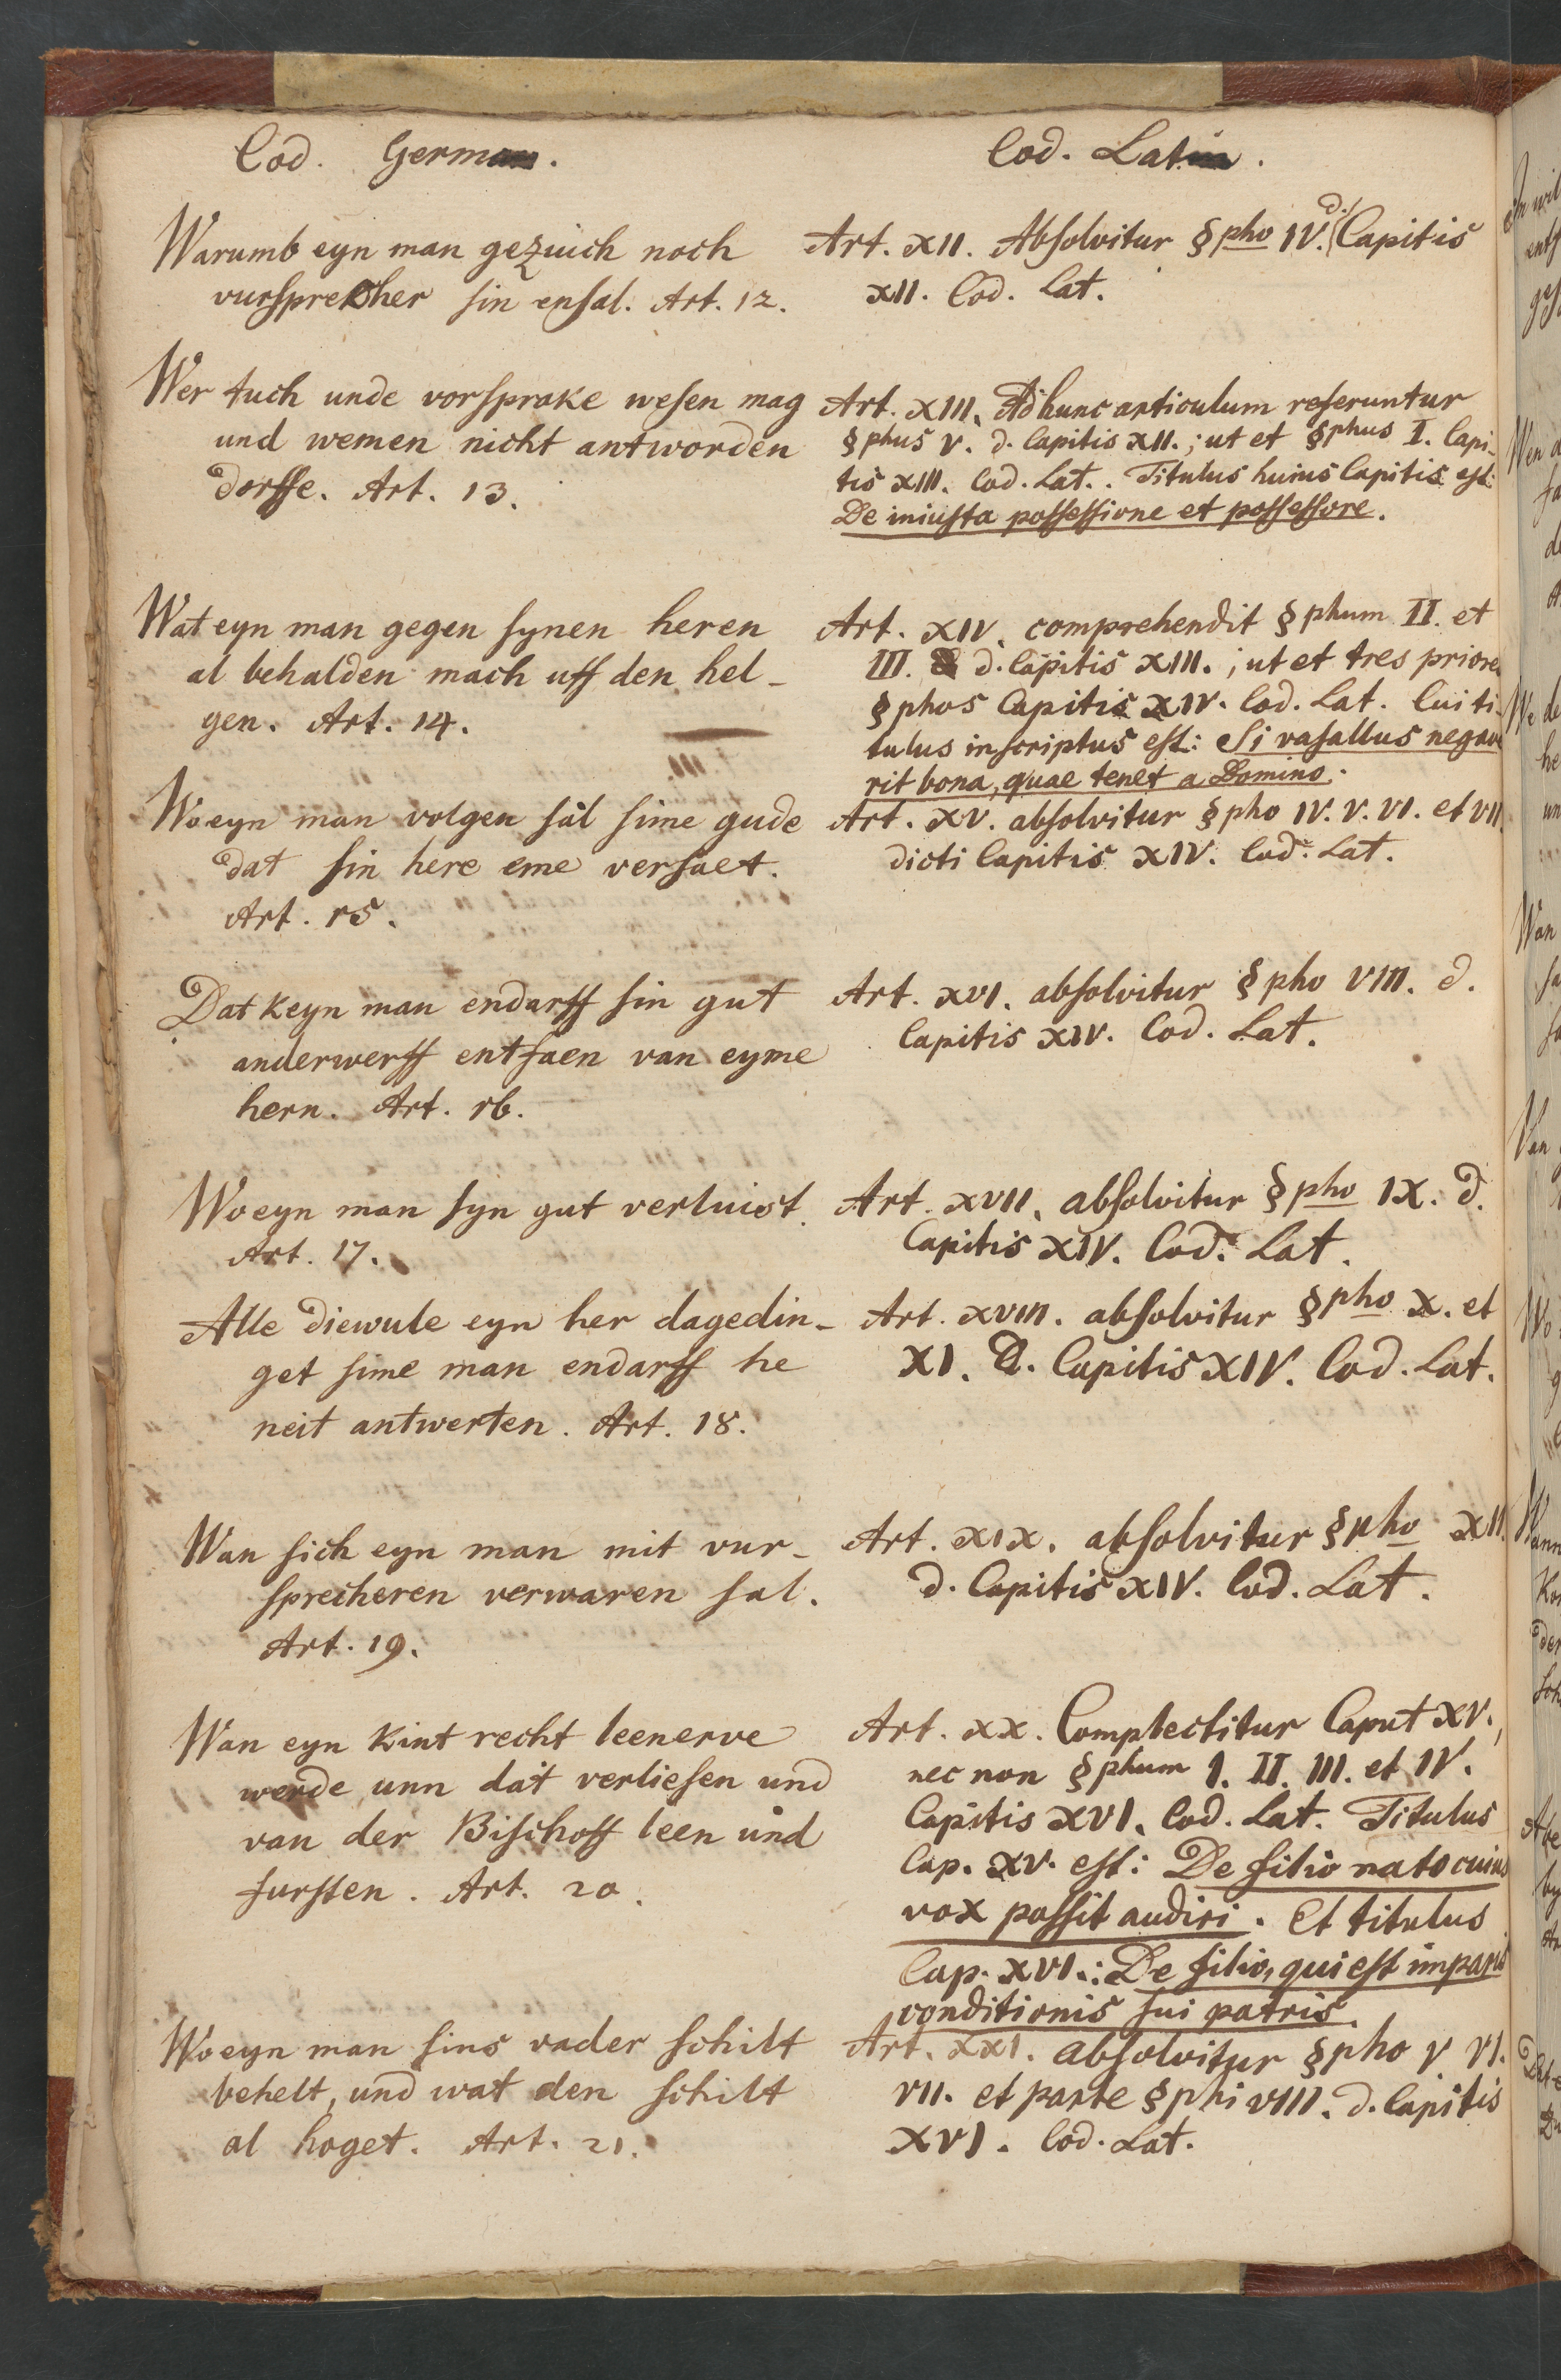 Cod. German.
Warumb eyn man gezuich noch
vursprecher sin ensal. Art. 12.
Wer tuch unde vorsprake wesen mag
und wemen nicht antworden
dorffe. Art. 13.
Wat eyn man gegen synen heren
al behalden mach uff den hel-
gen. Art. 14.
Wo eyn man volgen sal sime gude
dat sin here eme versaet.
Art. 15.
Dat keyn man endarff sin gut
anderwerff entfaen van eyme
hern. Art. 16.
Wo eyn man syn gut verluist.
Art. 17.
Alle diewule eyn her dagedin-
get sime man endarff he
neit antwerten. Art. 18.
Wan sich eyn man mit vur-
sprecheren verwaren sal.
Art. 19.
Wan eyn kint recht leenerve
werde unn dat verliesen und
van der Bischoff leen und
fursten. Art. 20.
Wo eyn man sins vader schilt
behelt, und wat den schilt
al hoget. Art. 21.
Cod. Latin.
Art. XII. Absolvitur §pho IV. d. Capitis
XII. Cod. Lat.
Art. XIII. Ad hunc articulum referuntur
§phus V. d. Capitis XII.; ut et §phus I. Capi-
tis XIII. Cod. Lat.. Titulus huius Capitis est:
De iniusta possessione et possessore.
Art. XIV. comprehendit §phum II. et
III. d. Capitis XIII.; ut et tres priores
§phos Capitis XIV. Cod. Lat. Cui ti-
tulus inscriptus est: Si vasallus negave
rit bona, quae tenet a Domino.
Art. XV. absolvitur §pho IV. V. VI. et VII.
dicti Capitis XIV. Cod. Lat.
Art. XVI. absolvitur §pho VIII. d.
Capitis XIV. Cod. Lat.
Art. XVII. absolvitur §pho IX. d.
Capitis XIV. Cod. Lat.
Art. XVIII. absolvitur §pho X. et
XI. d. Capitis XIV. Cod. Lat.
Art. XIX. absolvitur §pho XII.
d. Capitis XIV. Cod. Lat.
Art. XX. Complectitur Caput XV.,
nec non §phum I. II. III. et IV.
Capitis XVI. Cod. Lat. Titulus
Cap. XV. est: De filio nato cuius
vox possit audiri. Et titulus
Cap. XVI.: De filio, qui est imparis
conditionis sui patris.
Art. XXI. absolvitur §pho V. VI.
VII. et parte §phi VIII. d. Capitis
XVI. Cod. Lat.